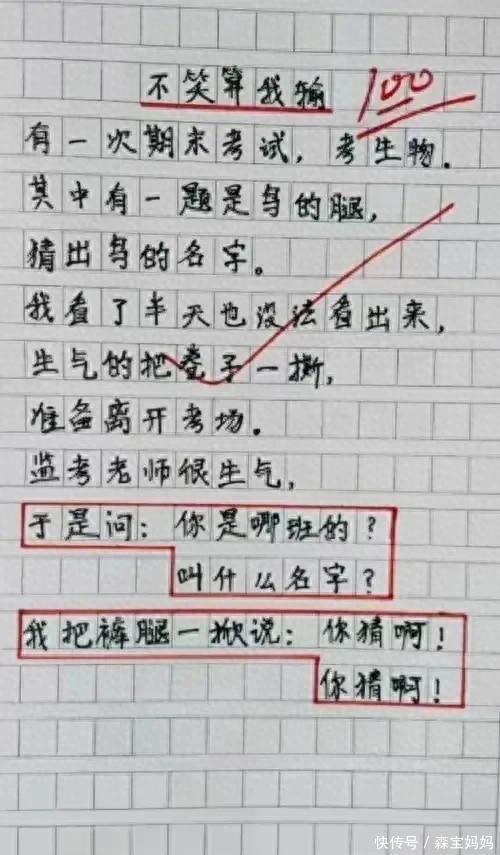 不笑算我输 100
有一次期末考试，考生物。
其中有一题是鸟的腿，
猜出鸟的名字。
我看了半天也没法看出来，
生气的把卷子一撕，
准备离开考场。
监考老师很生气，
于是问：你是哪班的？
叫什么名字？
我把裤腿一掀说：你猜啊！
你猜啊！
快传号／森宝妈妈